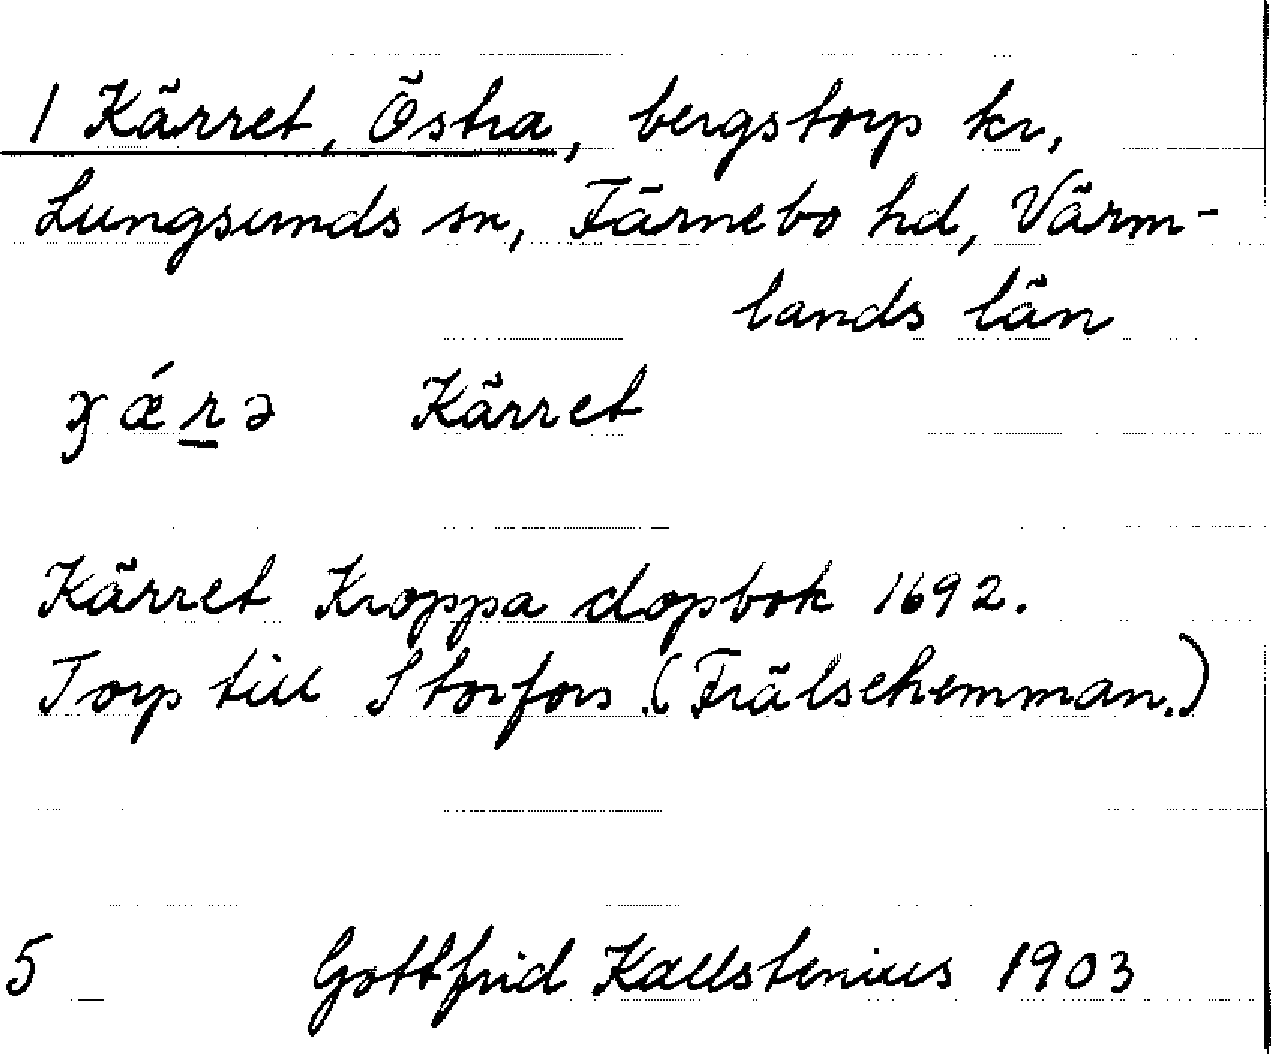 1 Kärret, Östra, bergstorp kr,
Lungsunds sn, Färnebo hd, Värm-
lands län
ɟǽrə Kärret
Kärret Kroppa dopbok 1692.
Torp till Storfors. (Frälsehemman.)
5 Gottfrid Kallstenius 1903